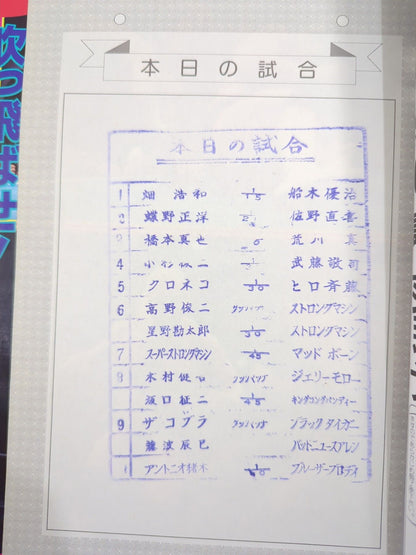 本日の試合
本日の試合
1 畑浩和 1/15 船木優治
2 蝶野正洋 佐野直喜
3 橋本真也 荒川真
4 小杉俊二 武藤敬司
5 クロネコ 1/30 ヒロ斉藤
6 高野俊二 タッグマッチ ストロングマシン
星野勘太郎 1/30 ストロングマシン
7 スーパーストロングマシン 1/45 マッドボーン
8 木村健吾 タッグマッチ ジェリーモロー
坂口征二 1/45 キングコングバンディー
9 ザコブラ タッグマッチ ブラックタイガー
藤波辰巳 バットニュースアレン
アントニオ猪木 ブルーザーブロディ